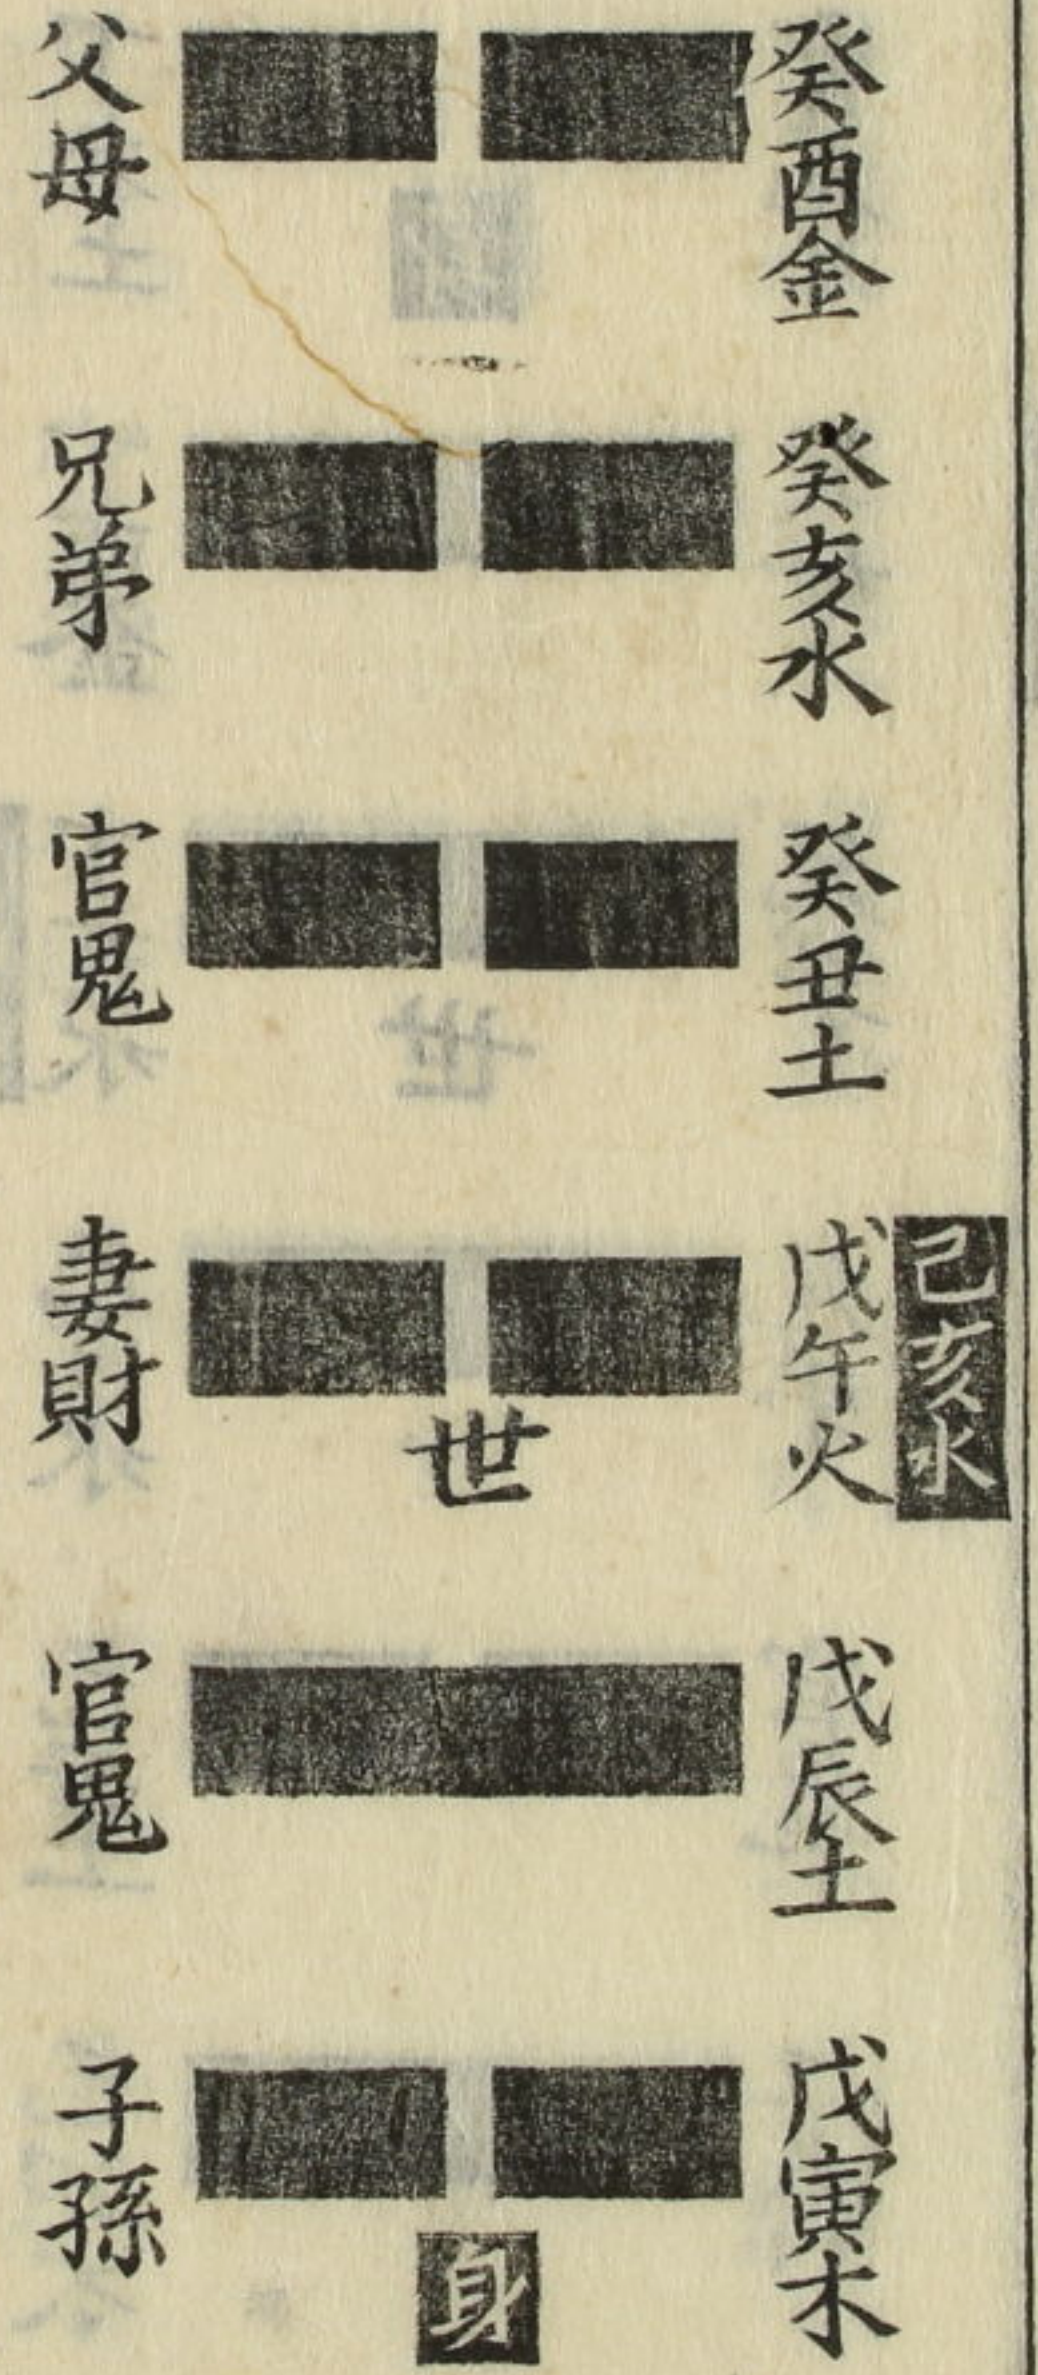 癸酉金
父母
癸亥水
兄弟
癸丑土
官鬼
己亥水
戊午火
世
妻財
戊辰土
官鬼
戊寅木
身
子孫